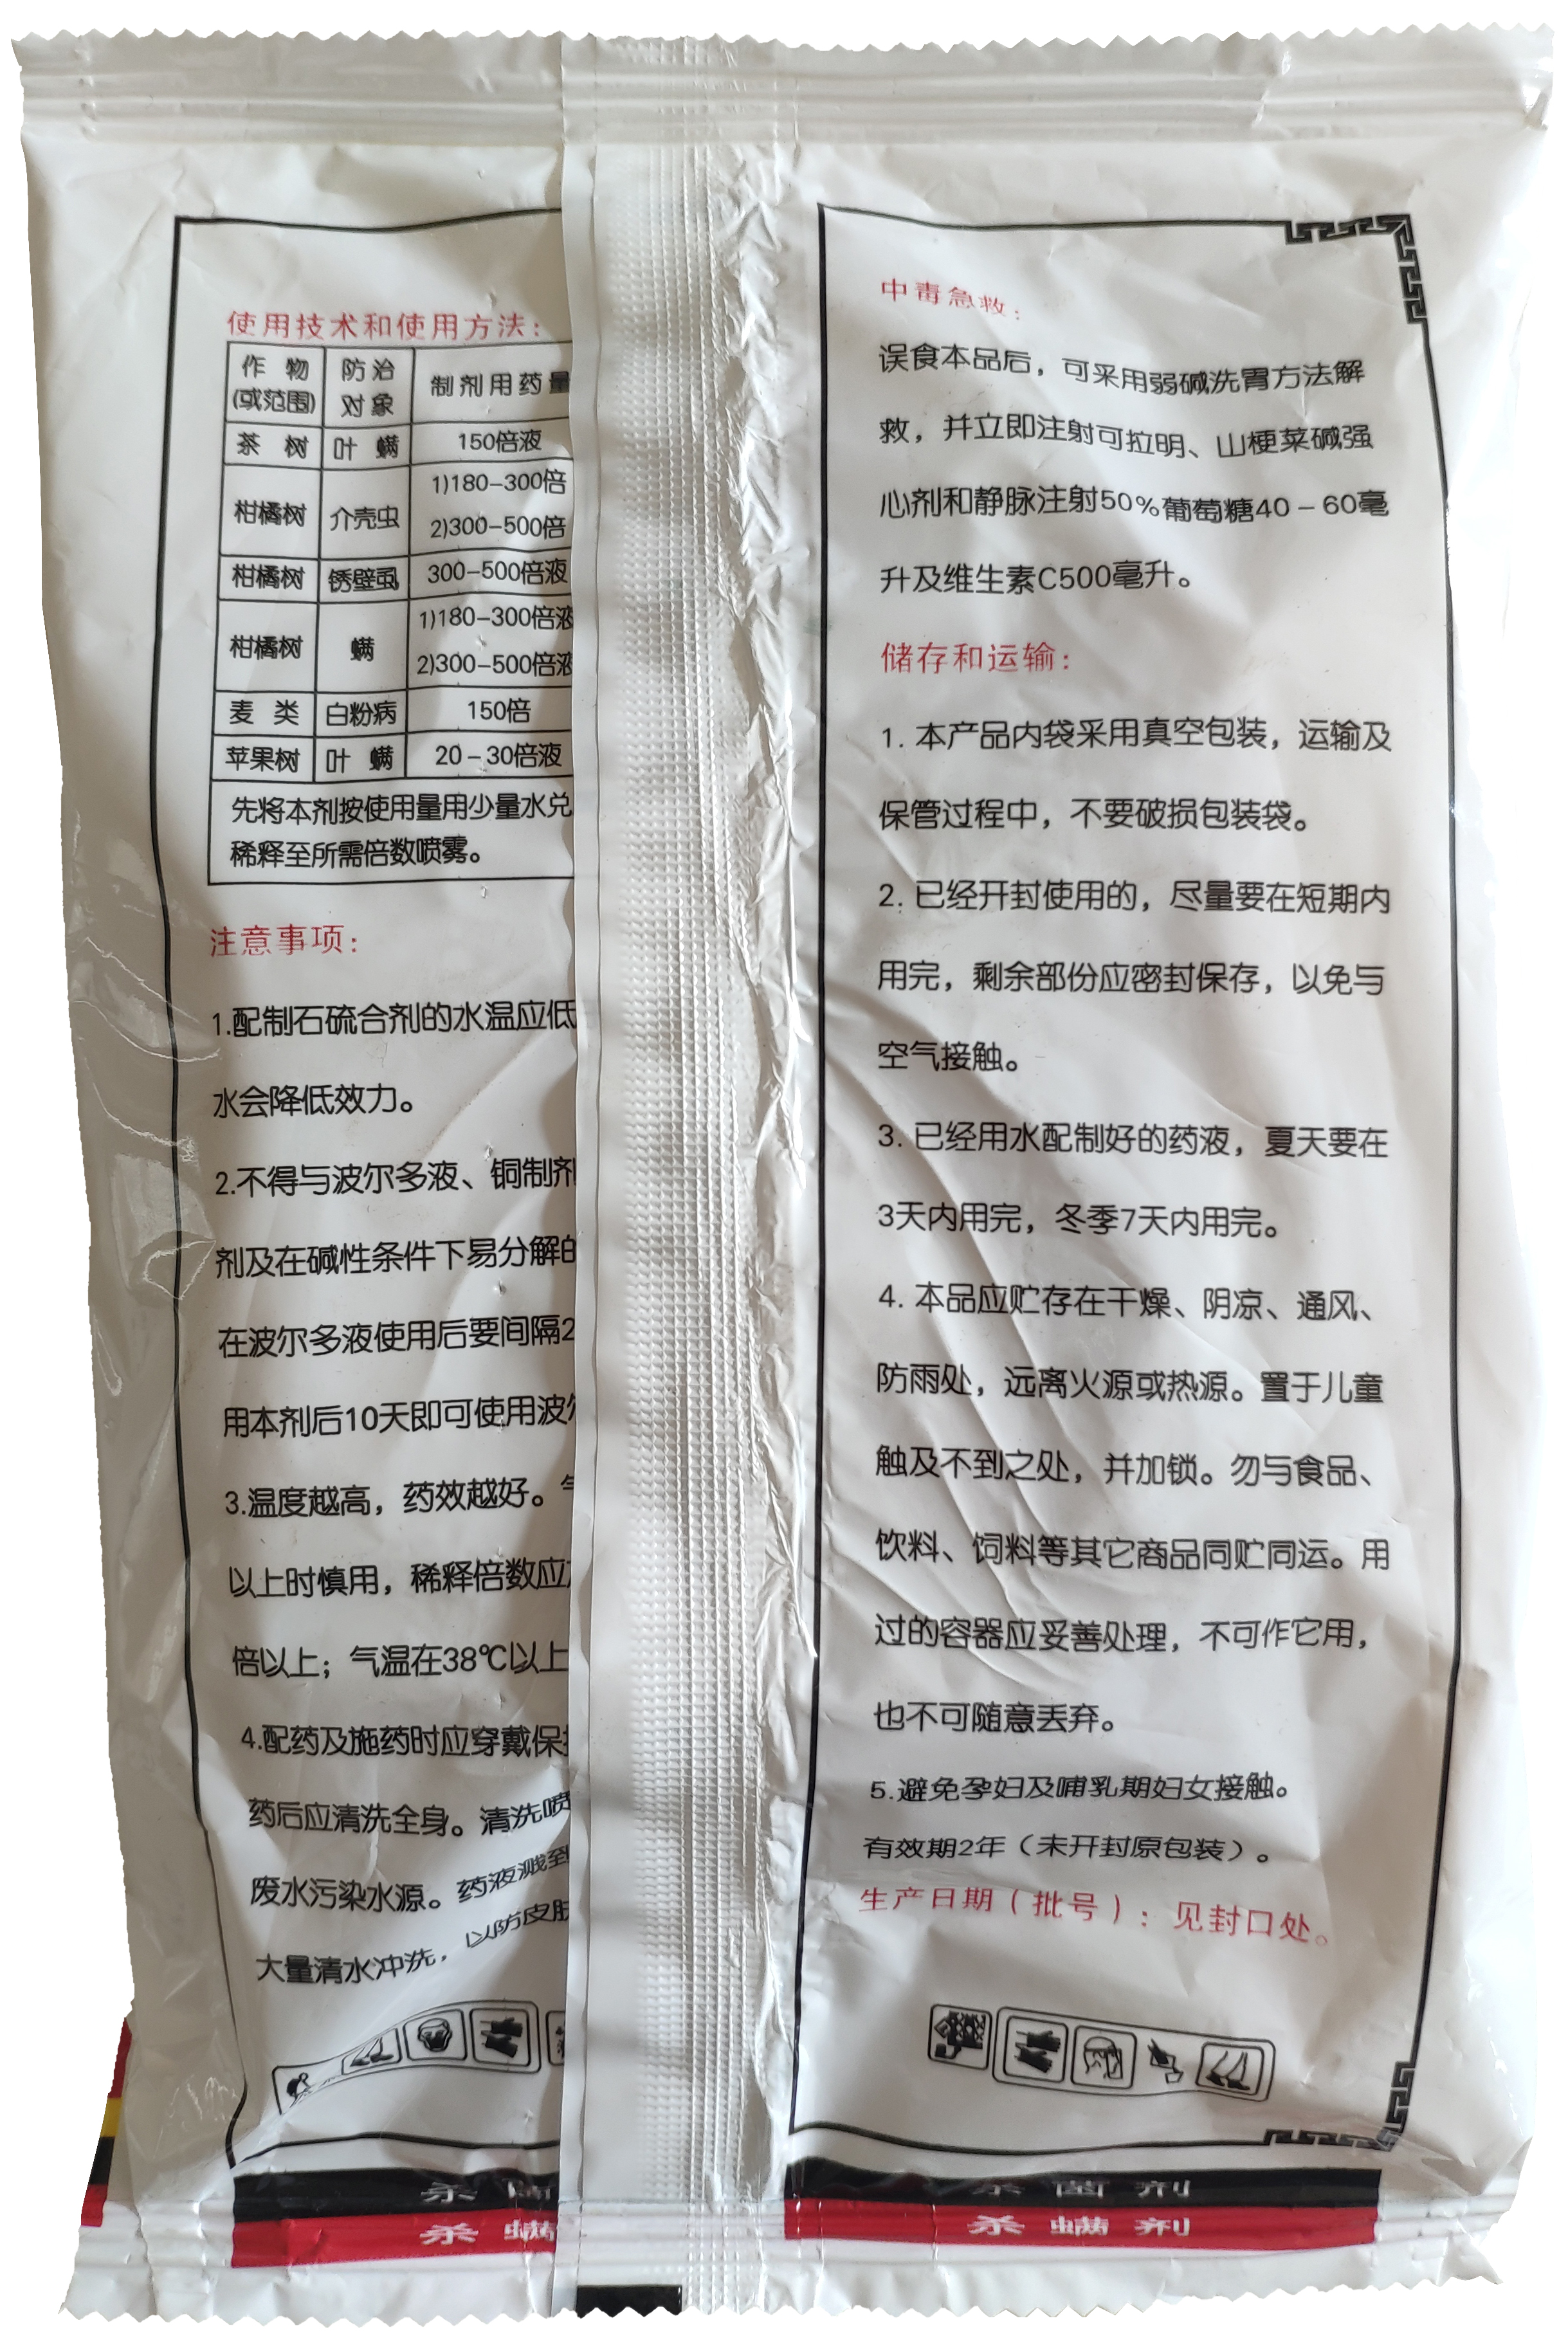 使用技术和使用方法：
作 物 防治 制剂用药量
(或范围) 对象
茶 树 叶 螨 150倍液
柑橘树 介壳虫 1)180-300倍
2)300-500倍
柑橘树 锈壁虱 300-500倍液
柑橘树 螨 1)180-300倍液
2)300-500倍液
麦 类 白粉病 150倍
苹果树 叶 螨 20-30倍液
先将本剂按使用量用少量水兑
稀释至所需倍数喷雾。
注意事项：
1.配制石硫合剂的水温应低
水会降低效力。
2.不得与波尔多液、铜制剂
剂及在碱性条件下易分解的
在波尔多液使用后要间隔2
用本剂后10天即可使用波尔
3.温度越高，药效越好。
以上时慎用，稀释倍数应
倍以上；气温在38℃以上
4.配药及施药时应穿戴保
药后应清洗全身。清洗喷
废水污染水源。药液溅到
大量清水冲洗，以防皮肤
中毒急救：
误食本品后，可采用弱碱洗胃方法解
救，并立即注射可拉明、山梗菜碱强
心剂和静脉注射50%葡萄糖40-60毫
升及维生素C500毫升。
储存和运输：
1. 本产品内袋采用真空包装，运输及
保管过程中，不要破损包装袋。
2. 已经开封使用的，尽量要在短期内
用完，剩余部份应密封保存，以免与
空气接触。
3. 已经用水配制好的药液，夏天要在
3天内用完，冬季7天内用完。
4. 本品应贮存在干燥、阴凉、通风、
防雨处，远离火源或热源。置于儿童
触及不到之处，并加锁。勿与食品、
饮料、饲料等其它商品同贮同运。用
过的容器应妥善处理，不可作它用，
也不可随意丢弃。
5.避免孕妇及哺乳期妇女接触。
有效期2年（未开封原包装）。
生产日期（批号）：见封口处。
杀菌
杀螨
杀菌剂
杀螨剂